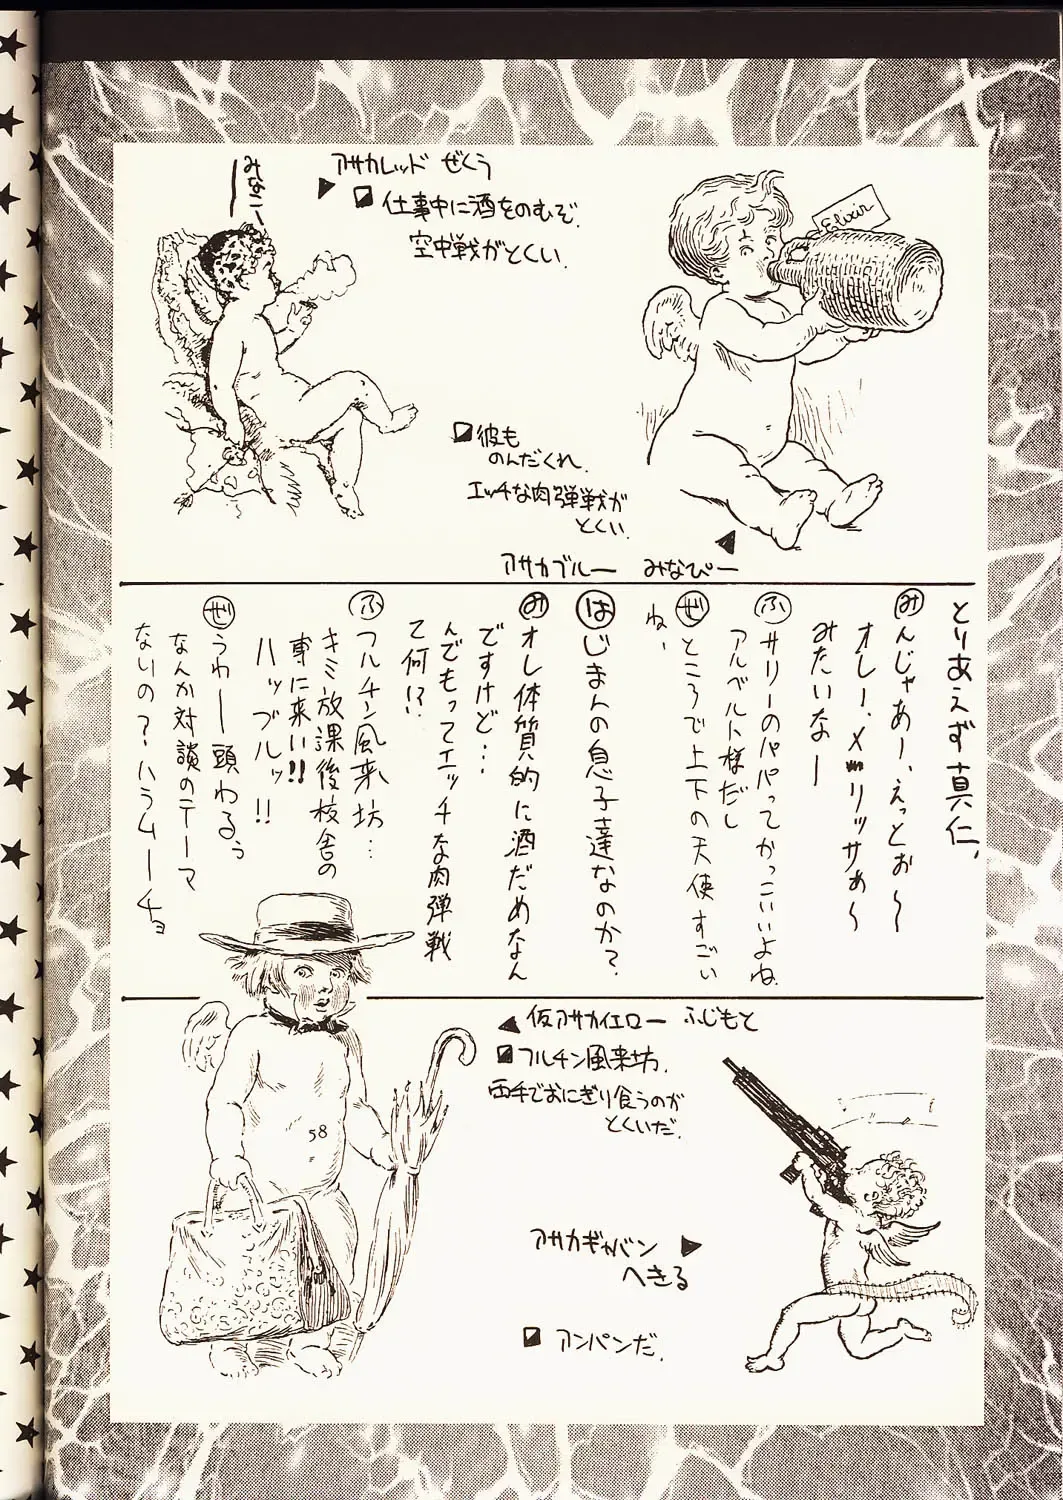 みなこ、
アサカレッド ぜくう
仕事中に酒をのむぞ.
空中戦がとくい.
Elixir
彼も
のんだくれ.
エッチな肉弾戦が
とくい.
アサカブルー みなぴー
とりあえず真仁、
みんじゃあー、えっとぉ〜
オレー、メーリッサぁ〜
みたいなー
ふサリーのパパってかっこいいよね.
アルベルト様だし
ぜところで上下の天使すごい
ね、
はじまんの息子達なのか？
みオレ体質的に酒だめなん
ですけど…
んでもってエッチな肉弾戦
て何!?
ふフルチン風来坊…
キミ放課後校舎の
裏に来い!!
ハッブルッ!!
ぜうわー頭わるぅ
なんか対談のテーマ
ないの？、ハラムーチョ
仮アサカイエロー ふじもと
フルチン風来坊.
両手でおにぎり食うのが
とくいだ.
58
アサカギャバン
へきる
アンパンだ.